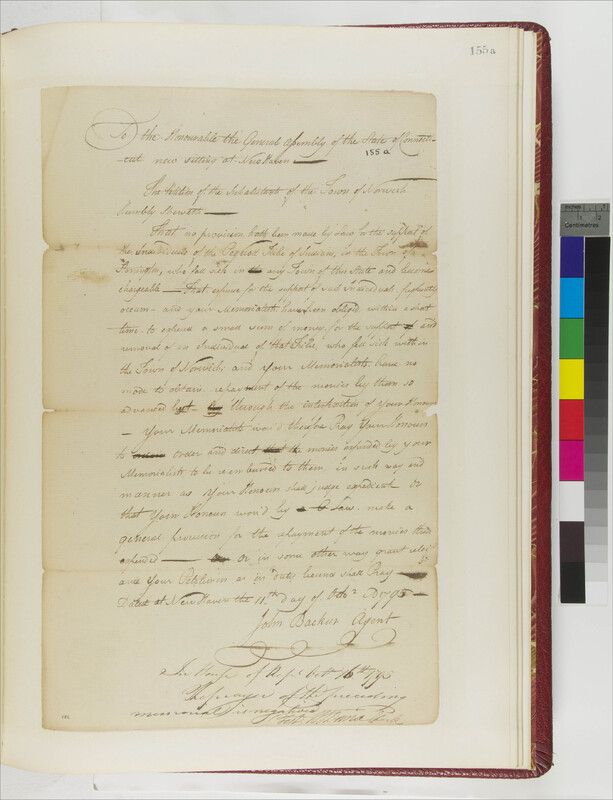 155a
To the Honourable the General Assembly of the State of Connecti-
155a
cut now sitting at New Haven
The Petition of the Inhabitants of the Town of Norwich
humbly sheweth
That no provision hath been made by Law for the support of
the Individuals of the Tribe of Indians, in the Town of
Farmington, who fall sick in any Town of this State and become
chargeable — That expence for the support of such Individuals, frequently
occurs — and your Memorialists have been obliged within a short
time to expend a small sum of money for the support and
removal of an Individual of that Tribe, who fell sick within
the Town of Norwich and your Memorialists have no
mode to obtain repayment of the monies by them so
advanced but through the interposition of your Honours
— Your Memorialists would therefore Pray Your Honours
to order and direct the monies expended by your
Memorialists to be reimbursed to them in such way and
manner as Your Honours shall judge expedient or
that Your Honours wou'd by a Law make a
general provision for the payment of the monies thus
expended — or in some other way grant relief
and Your Petitioners as in duty bound shall Pray
Dated at New Haven the 11th day of Octr. AD 1795
John Backus Agent
In House of Reps Oct 16th 1795
The prayer of the preceding
memorial is negatived
Test Clerk
Inches
Centimetres